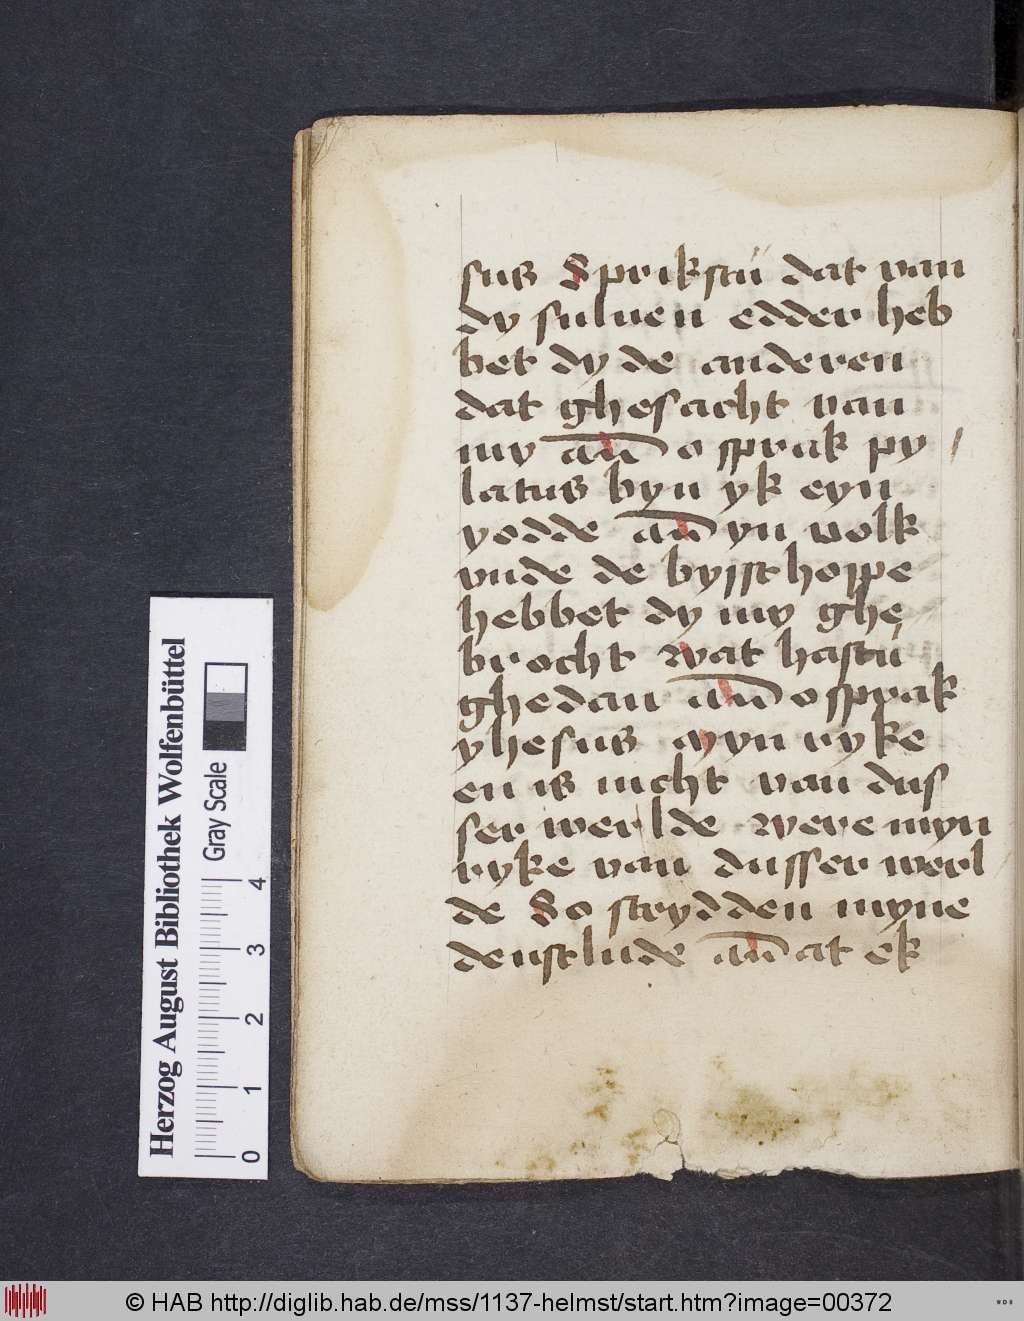 sus Sprikstu dat van
dy suluen edder heb
bet dy de anderen
dat ghesacht van
my do sprak py
latus byn yk eyn
yodde dyn volk
vnde de bysschoppe
hebbet dy my ghe
brocht wat hastu
ghedan do sprak
yhesus Myn ryke
en is nicht van dus
ser werlde were myn
ryke van dusser werl
de So strydden myne
denstlude dat ek
Herzog August Bibliothek Wolfenbüttel
Gray Scale
0 1 2 3 4
© HAB http://diglib.hab.de/mss/1137-helmst/start.htm?image=00372